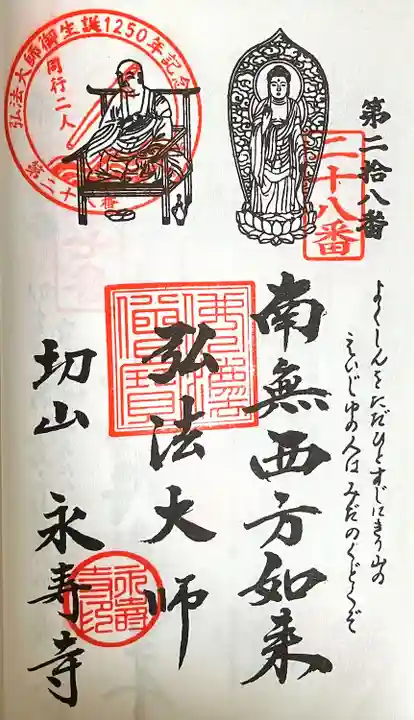 弘法大師御生誕1250年記念
同行二人
第二十八番
第二拾八番
二十八番
よくしんをたゞひとすじにきり山の
ゑいじゆの人はみだのくどくぞ
南無西方如来
佛法僧寶
弘法大師
切山 永寿寺
永壽寺印